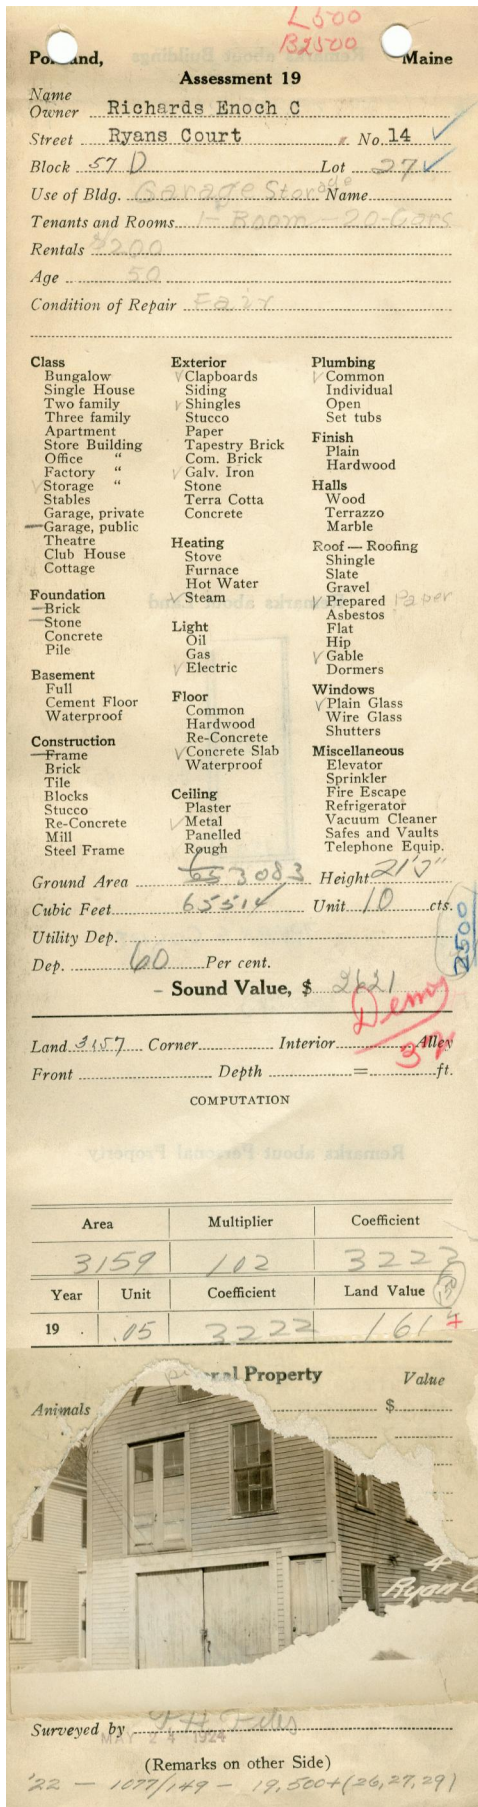 L500
B2500
Portland, Maine
Assessment 19
Name
Owner Richards Enoch C
Street Ryans Court No. 14
Block 57 D Lot 27
Use of Bldg. Garage Storage Name
Tenants and Rooms 1- Room - 20-Cars
Rentals $200
Age 50
Condition of Repair Fair
Class
Bungalow
Single House
Two family
Three family
Apartment
Store Building
Office "
Factory "
Storage "
Stables
Garage, private
Garage, public
Theatre
Club House
Cottage
Foundation
Brick
Stone
Concrete
Pile
Basement
Full
Cement Floor
Waterproof
Construction
Frame
Brick
Tile
Blocks
Stucco
Re-Concrete
Mill
Steel Frame
Exterior
Clapboards
Siding
Shingles
Stucco
Paper
Tapestry Brick
Com. Brick
Galv. Iron
Stone
Terra Cotta
Concrete
Heating
Stove
Furnace
Hot Water
Steam
Light
Oil
Gas
Electric
Floor
Common
Hardwood
Re-Concrete
Concrete Slab
Waterproof
Ceiling
Plaster
Metal
Panelled
Rough
Plumbing
Common
Individual
Open
Set tubs
Finish
Plain
Hardwood
Halls
Wood
Terrazzo
Marble
Roof — Roofing
Shingle
Slate
Gravel
Prepared Paper
Asbestos
Flat
Hip
Gable
Dormers
Windows
Plain Glass
Wire Glass
Shutters
Miscellaneous
Elevator
Sprinkler
Fire Escape
Refrigerator
Vacuum Cleaner
Safes and Vaults
Telephone Equip.
Ground Area 3083 Height
Cubic Feet 65514 Unit 10 cts.
2500
Utility Dep.
Dep. 60 Per cent.
Sound Value, $ 2621
Demo
32
Land 3157 Corner Interior Alley
Front Depth = ft.
COMPUTATION
Area Multiplier Coefficient
3159 102 3222
Year Unit Coefficient Land Value
19 .05 3222 161
Personal Property Value
Animals $
Ryan C
Surveyed by
MAY 24 1924
(Remarks on other Side)
'22 - 1077/149 - 19,500+(26,27,29)